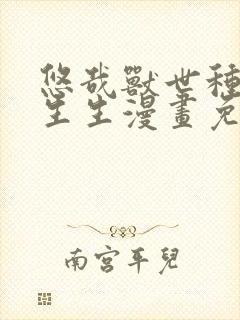 悠哉獸世種
生生漫畫免
南宮平兒